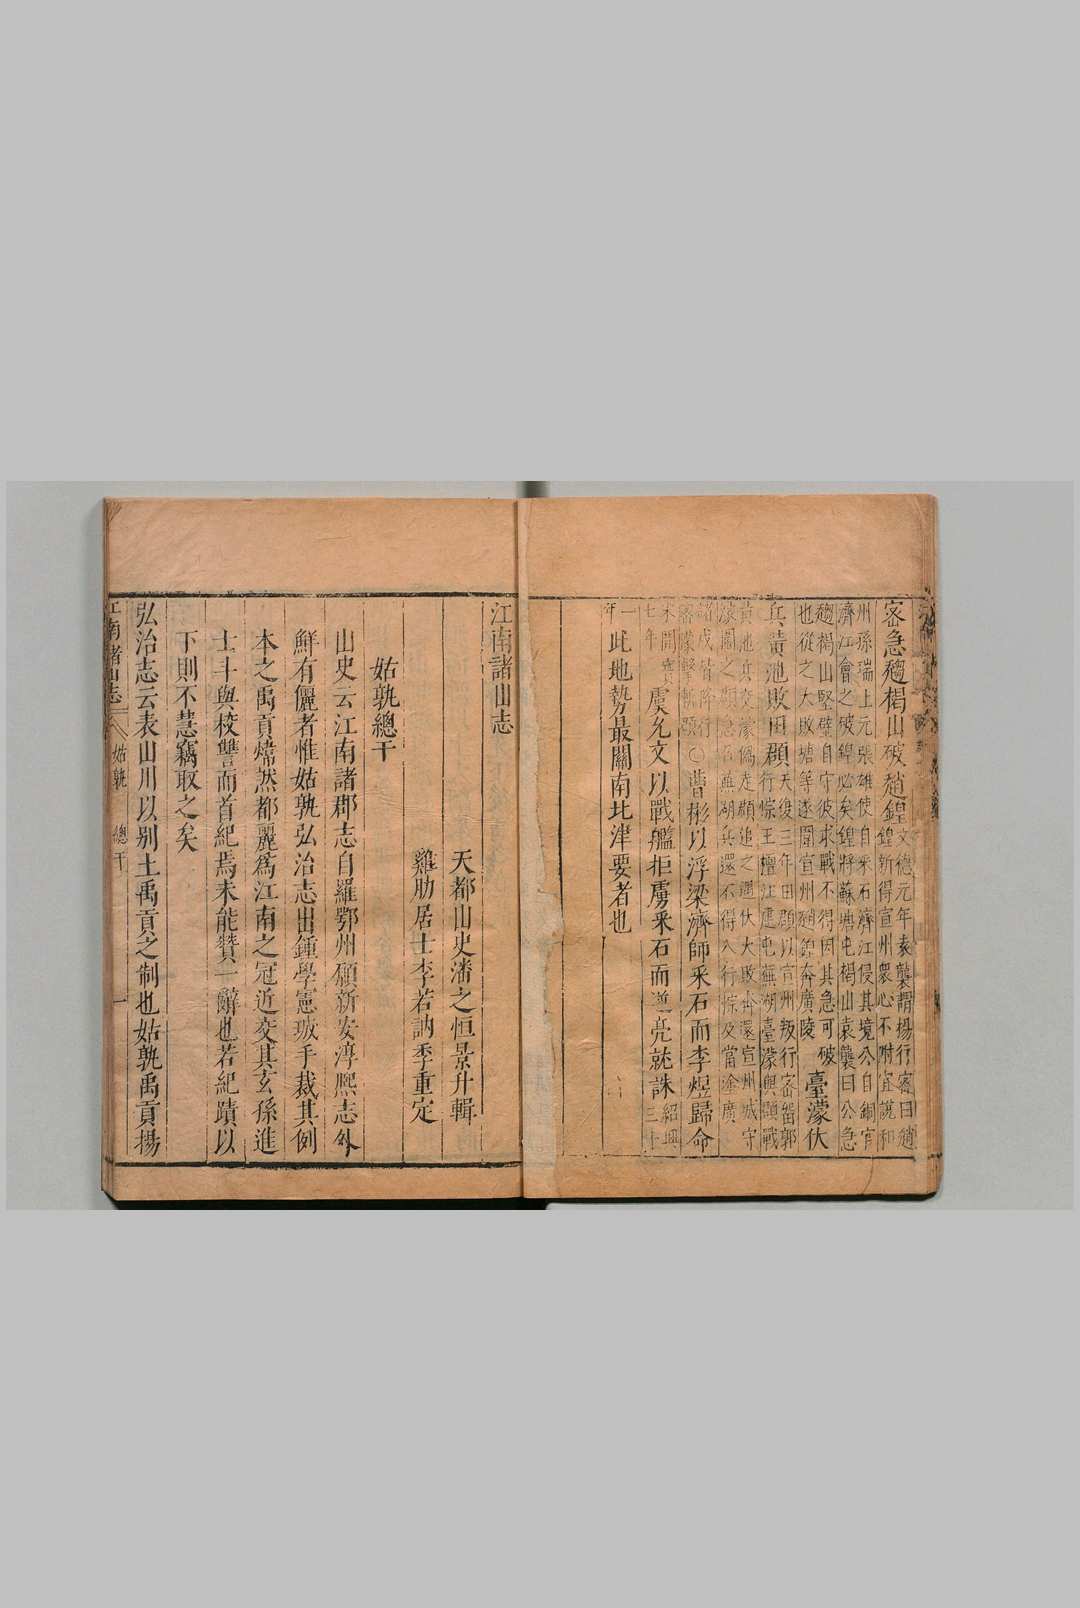 密急趨楬山破趙鍠文德元年袁襲謂楊行密曰趙
鍠新得宣州衆心不附宜說和
州孫瑞上元張雄使自采石濟江侵其境公自銅官
濟江會之破鍠必矣鍠將蘇塘屯楬山袁襲曰公急
趨楬山堅壁自守彼求戰不得因其急可破
也從之大敗塘等遂圍宣州趙鍠奔廣陵臺濛伏
兵黄池敗田頵天復三年田頵以宣州叛行密畱郭
行悰王壇江建屯蕪湖臺濛與頵戰
黄池兵交濛僞走頵追之遇伏大敗奔還宣州城守
濛圍之頵急召蕪湖兵還不得入行悰及當塗廣
諸戍皆降行
密濛擊斬頵○曹彬以浮梁濟師采石而李煜歸命
宋開寶
七年虞允文以戰艦拒虜采石而逆亮就誅紹興三十
一
年此地勢最關南北津要者也
江南諸山志
天都山史潘之恒景升輯
雞肋居士李若訥季重定
姑孰總干
山史云江南諸郡志自羅鄂州願新安淳熙志外
鮮有儷者惟姑孰弘治志出鍾學憲珹手裁其例
本之禹貢煒然都麗爲江南之冠近交其玄孫進
士斗與校讐而首紀焉未能贊一辭也若紀蹟以
下則不慧竊取之矣
弘治志云表山川以别土禹貢之制也姑孰禹貢揚
江南諸山志 姑孰 總干 一